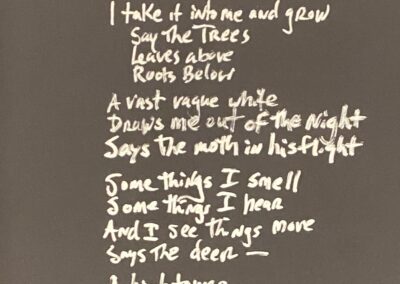 I take it into me and grow
Say The Trees
Leaves above
Roots Below
A vast vague white
Draws me out of the Night
Says the moth in his flight
Some things I smell
Some things I hear
And I see things move
Says The deer —